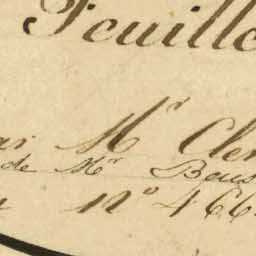 Feuille
Mr Cler
de Mr Beus
n° 466